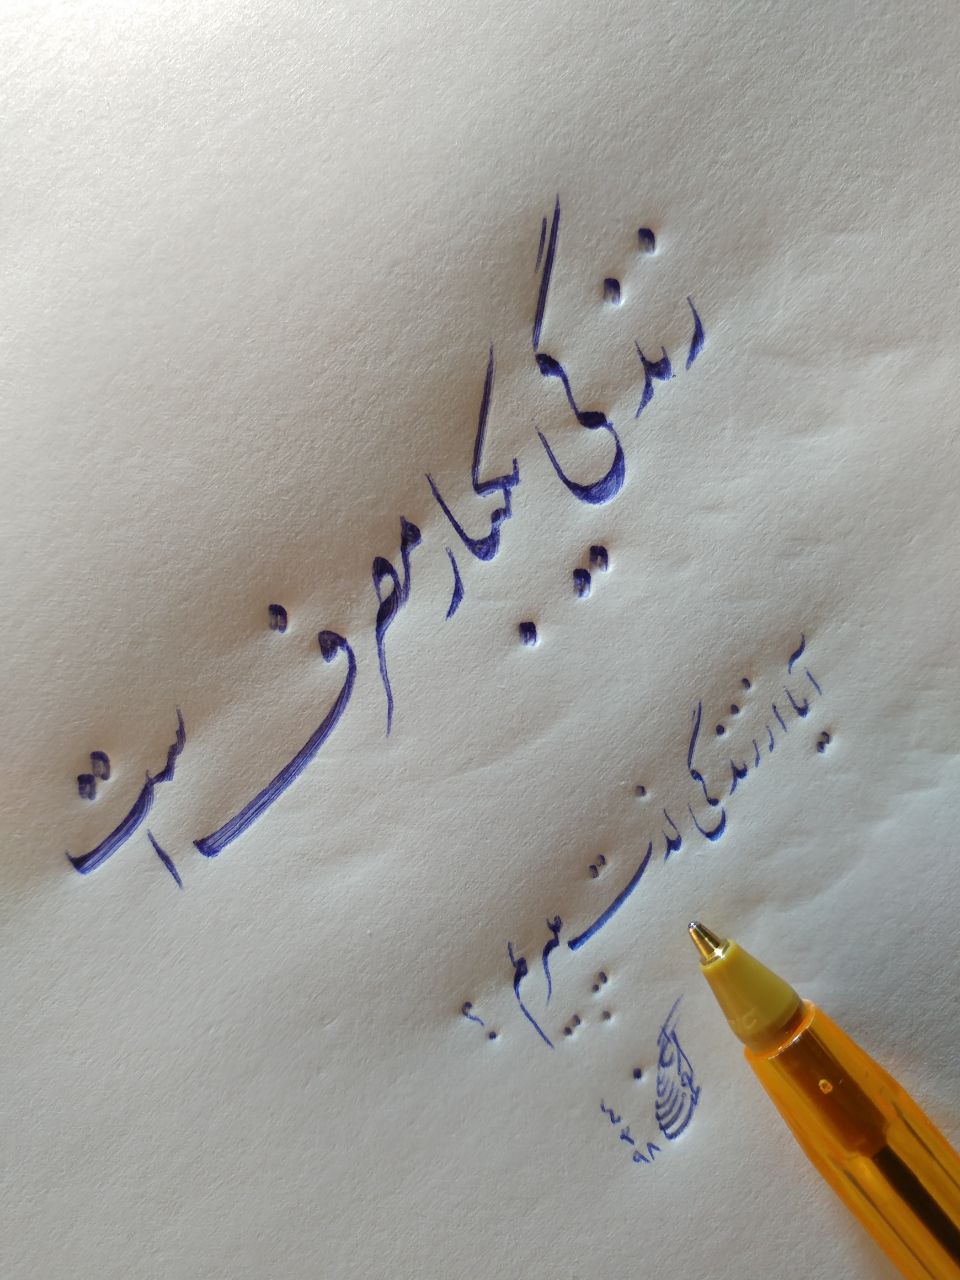 زندگی یکبار مصرف است
آیا از زندگی لذت میبریم ؟
۹۸